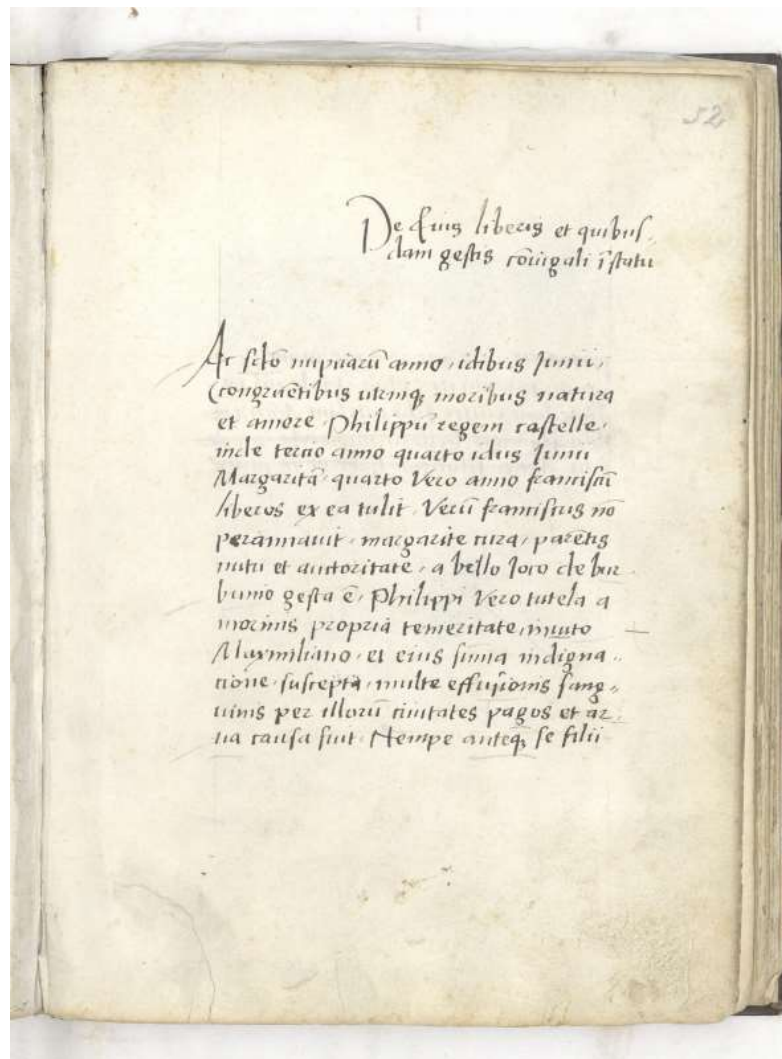 52
De Eius liberis et quibus,
dam gestis cōiugali ī statu
At scdō nuptiarū anno, idibus Junii,
Congruētibus utrinqꝫ moribus natura
et amore, Philippū regem castelle,
inde tercio anno quarto idus Junii
Margaritā, quarto Vero anno franciscū
liberos ex ea tulit. Verū franciscus nō
perannauit, margarite cura, parētis
nutu et auctoritate, a bello loco de bur
bunio gesta ē, Philippi Vero tutela a
morinis propria temeritate, inuito
Maxmiliano, et eius suma indigna„
cione, suscepta, multe effusionis sang„
uinis per illorū ciuitates pagos et ar,
ua causa fuit. Nempe anteqꝫ se filii